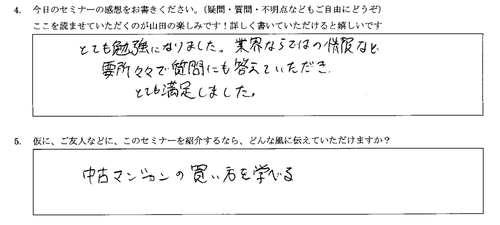 4. 今日のセミナーの感想をお書きください。（疑問・質問・不明点などもご自由にどうぞ）
ここを読ませていただくのが山田の楽しみです！詳しく書いていただけると嬉しいです
とても勉強になりました。業界ならではの情報など、
要所々々で質問にも答えていただき
とても満足しました。
5. 仮に、ご友人などに、このセミナーを紹介するなら、どんな風に伝えていただけますか？
中古マンションの買い方を学べる